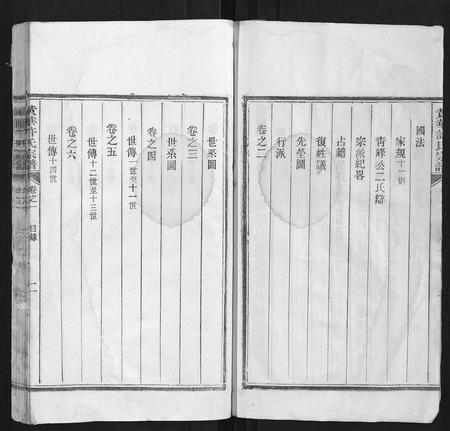 黃華許氏宗譜
國法
家規十一則
青峰公二氏辯
宗派紀畧
占籍
復姓議
先塋圖
行派
卷之二
世系圖
卷之三
世系圖
卷之四
世傳一世至十一世
卷之五
世傳十二世至十三世
卷之六
世傳十四世
黃華許氏宗譜
卷之一
目錄
二